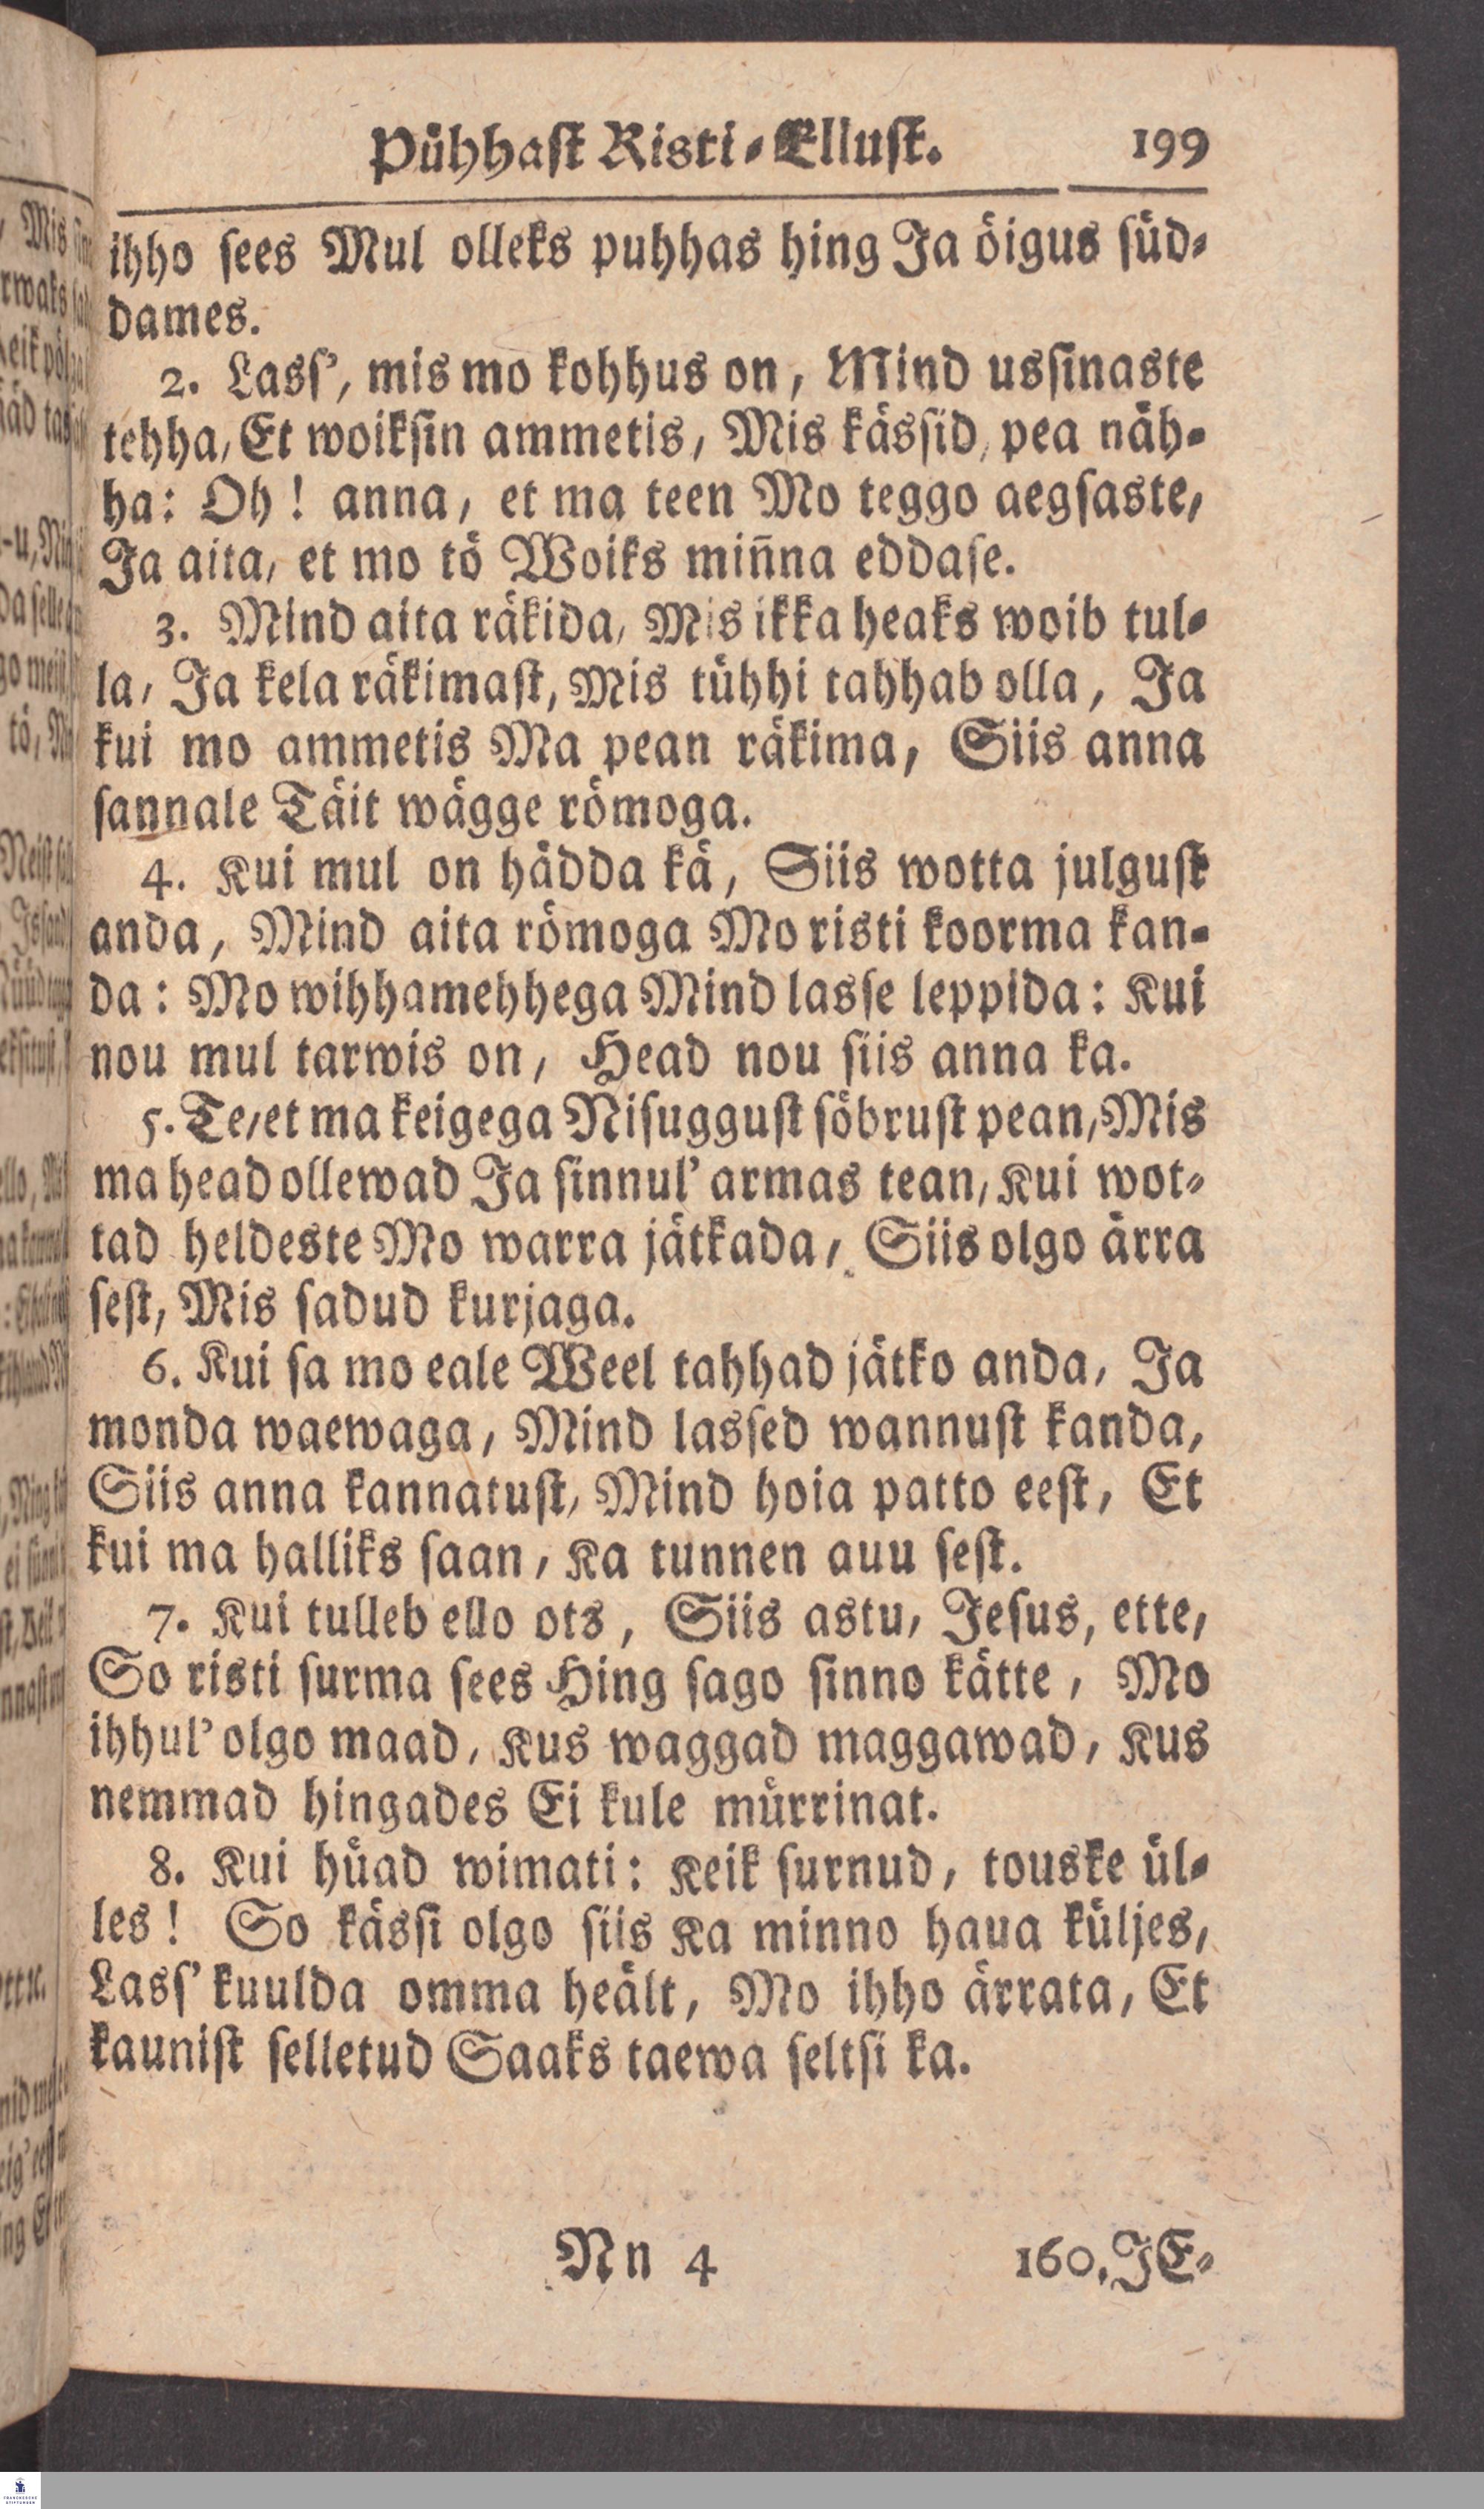 Pühhaſt Risti-Elluſt. 199
ihho ſees Mul olleks puhhas hing Ja öigus ſüd-
dames.
2. Lasſ', mis mo kohhus on, Mind usſinaste
tehha, Et woikſin ammetis, Mis käsſid, pea näh-
ha: Oh! anna, et ma teen Mo teggo aegſaste,
Ja aita, et mo tö Woiks min̄na eddaſe.
3. Mind aita räkida, Mis ikka heaks woib tul-
la, Ja kela räkimaſt, Mis tühhi tahhab olla, Ja
kui mo ammetis Ma pean räkima, Siis anna
ſannale Täit wägge römoga.
4. Kui mul on hädda kä, Siis wotta julguſt
anda, Mind aita römoga Mo risti koorma kan-
da: Mo wihhamehhega Mind lasſe leppida: Kui
nou mul tarwis on, Head nou ſiis anna ka.
5. Te, et ma keigega Niſugguſt ſöbruſt pean, Mis
ma head ollewad Ja ſinnul' armas tean, Kui wot-
tad heldeste Mo warra jätkada, Siis olgo ärra
ſeſt, Mis ſadud kurjaga.
6. Kui ſa mo eale Weel tahhad jätko anda, Ja
monda waewaga, Mind lasſed wannuſt kanda,
Siis anna kannatuſt, Mind hoia patto eeſt, Et
kui ma halliks ſaan, Ka tunnen auu ſeſt.
7. Kui tulleb ello ots, Siis astu, Jeſus, ette,
So risti ſurma ſees Hing ſago ſinno kätte, Mo
ihhul' olgo maad, Kus waggad maggawad, Kus
nemmad hingades Ei kule mürrinat.
8. Kui hüad wimati: Keik ſurnud, touske ül-
les! So käsſi olgo ſiis Ka minno haua küljes,
Lasſ' kuulda omma heält, Mo ihho ärrata, Et
kauniſt ſelletud Saaks taewa ſeltſi ka.
Nn 4 160. JE-